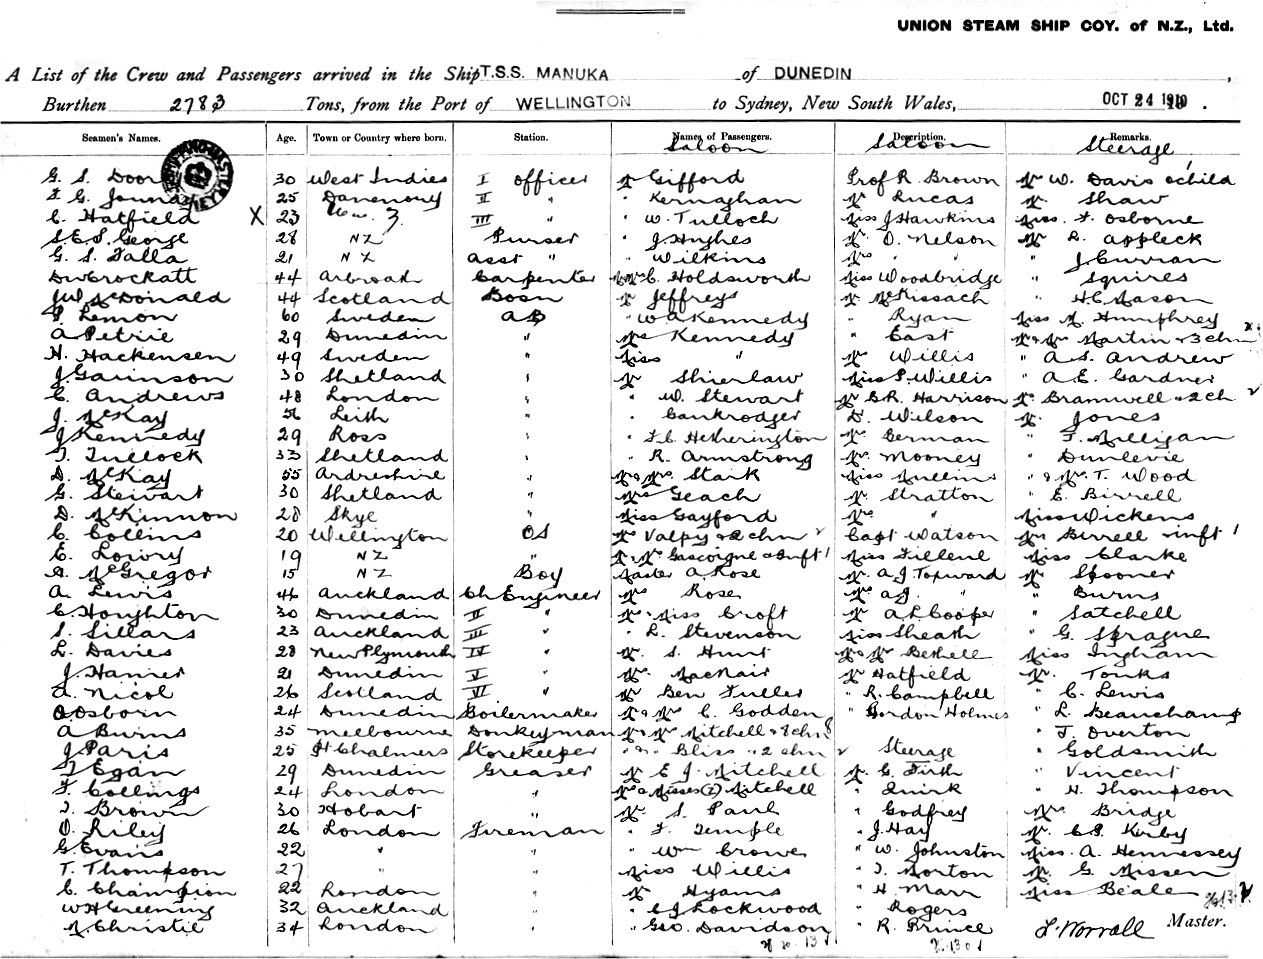 UNION STEAM SHIP COY. of N.Z., Ltd.
A List of the Crew and Passengers arrived in the Ship T.S.S. MANUKA of DUNEDIN,
Burthen 2783 Tons, from the Port of WELLINGTON to Sydney, New South Wales, OCT 24 1910.
Seamen's Names. Age. Town or Country where born. Station. Names of Passengers. Description. Remarks.
Saloon Saloon Steerage
G. S. Door 30 West Indies I officer Mr Gifford Prof R. Brown Mr W. Davis & child
F. G. 25 II " " Kernaghan Mr Lucas Mr Shaw
C. Hatfield X 23 III " " W. Tulloch Miss J Hawkins Miss. F. Osborne
S. E. S. George 28 NZ Purser " J. Hughes Mr O. Nelson Mr R. Appleck
G. S. Falla 21 NZ Asst " " Wilkins Mrs " " " J. Curran
D. W. Crockatt 44 Arbroath Carpenter C. Holdsworth Miss Woodbridge " Squires
J W McDonald 44 Scotland Bosn Mr Jeffreys Mr McKissach " H. C. Mason
Lemon 60 Sweden AB " W A Kennedy " Ryan Miss M. Humphrey
A Petrie 29 Dunedin " Mrs Kennedy " East Mr & Mrs Martin & 3 chn
H. Hackensen 49 Sweden " Miss " Mr Willis " A. S. Andrew
J. 30 Shetland " Mr Shierlaw Miss S. Willis " A. E. Gardner
C. Andrews 48 London " " W. Stewart Mr G. R. Harrison Mrs Bramwell & 2 ch
J. McKay 56 Leith " " Cankrodger D. Wilson Mr. Jones
J Kennedy 29 Ross " " F. C. Hetherington Mr. German " J. Milligan
T. Tullock 33 Shetland " " R. Armstrong Mr. Mooney " Dunlevie
D. McKay 55 " Mr & Mrs Stark Miss Mullins " & Mrs T. Wood
G. Stewart 30 Shetland " Mrs Geach Mr Stratton " E. Birrell
D. McKinnon 28 Skye " Miss Gayford Mrs " Miss Wickens
C. Collins 20 Wellington OS Mr Valpy & 2 chn 2 Capt Watson Mrs Birrell & inft 1
E. Lowry 19 NZ " Mr & Mrs Gascoigne & inft 1 Miss Fillene Miss Clarke
A. McGregor 15 NZ Boy Master A. Rose Mr. A. J. Topward Mr Spooner
A. Lewis 46 Auckland Ch Engineer Mrs Rose Mrs A. J. " " Burns
C Houghton 30 Dunedin II " Mr & Miss Croft Mr A L Cooper " Satchell
S. Sillars 23 Auckland III " " L. Stevenson Miss Sheath " G. Sprague
L. Davies 28 New Plymouth IV " Mr. S. Hunt Mr & Mrs Bethell Miss Ingham
J. Hamer 21 Dunedin V " Mr. MacNair Mr Hatfield Mr. Tonks
A. Nicol 26 Scotland VI " Mr Ben Fuller " R. Campbell " C. Lewis
O Osborn 24 Dunedin Boilermaker Mr & Mrs C. Godden " Gordon Holmes " L. Beauchamp
A Burns 35 Melbourne Donkeyman Mr & Mrs Mitchell & 8 chn 8 " J. Overton
J. Paris 25 Pt Chalmers Storekeeper " & " Bliss & 2 chn 2 Steerage " Goldsmith
J Egan 29 Dunedin Greaser Mr E J Mitchell Mr G. Firth " Vincent
F. Collings 24 London " Mrs & Misses (2) Mitchell " Quirk " H. Thompson
J. Brown 30 Hobart " Mr. S. Paul " Godfrey Mrs Bridge
O. Riley 26 London Fireman " F. Temple " J. Hay Mr. C. S. Kirby
G. Evans 22 " " " Wm Crowe " W. Johnston Miss. A. Hennessey
T. Thompson 27 " " Miss Willis " J. Norton Mr. G Nissen
C. Champion 22 London " Mr Hyams " H. Marr Miss Beale
W H Greening 32 Auckland " " C J Lockwood " Rogers
Christie 34 London " " Geo. Davidson " R. Prince L. Worrall Master.